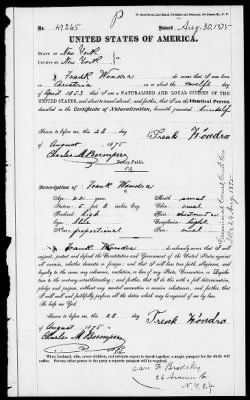 No. 49265
P
Issued Aug. 30, 1875
UNITED STATES OF AMERICA.
STATE OF New York
COUNTY OF New York } ss.
I, Frank Wondra do swear that I was born
in Austria on or about the twelfth day
of April 1853 that I am a NATURALIZED AND LOYAL CITIZEN OF THE
UNITED STATES, and about to travel abroad; and further, that I am the identical Person
described in the Certificate of Naturalization, herewith presented
Sworn to before me this 28 day
of August 1875
Notary Public
Description of Frank Wondra
Age: 22 years
Stature: 5 feet inches Eng.
Forehead: high
Eye: blue
Nose: proportional
Mouth: small
Chin: oval
Hair:
Complexion: light
Face: oval
I, Frank Wondra do solemnly swear that I will
support, protect and defend the Constitution and Government of the United States against
all enemies, whether domestic or foreign; and that I will bear true faith, allegiance, and
loyalty to the same, any ordinance, resolution, or law of any State, Convention, or Legisla-
ture to the contrary notwithstanding; and further, that I do this with a full determination,
pledge and purpose, without any mental reservation or evasion whatsoever; and further, that
I will well and faithfully perform all the duties which may be required of me by law.
So help me God.
Sworn to before me this 28 day
of August 1875
When husband, wife, minor children, and servants expect to travel together, a single passport for the whole will
suffice. For any other person in the party a separate passport will be required.
care F. Brodsky
26 Avenue
N.Y. City